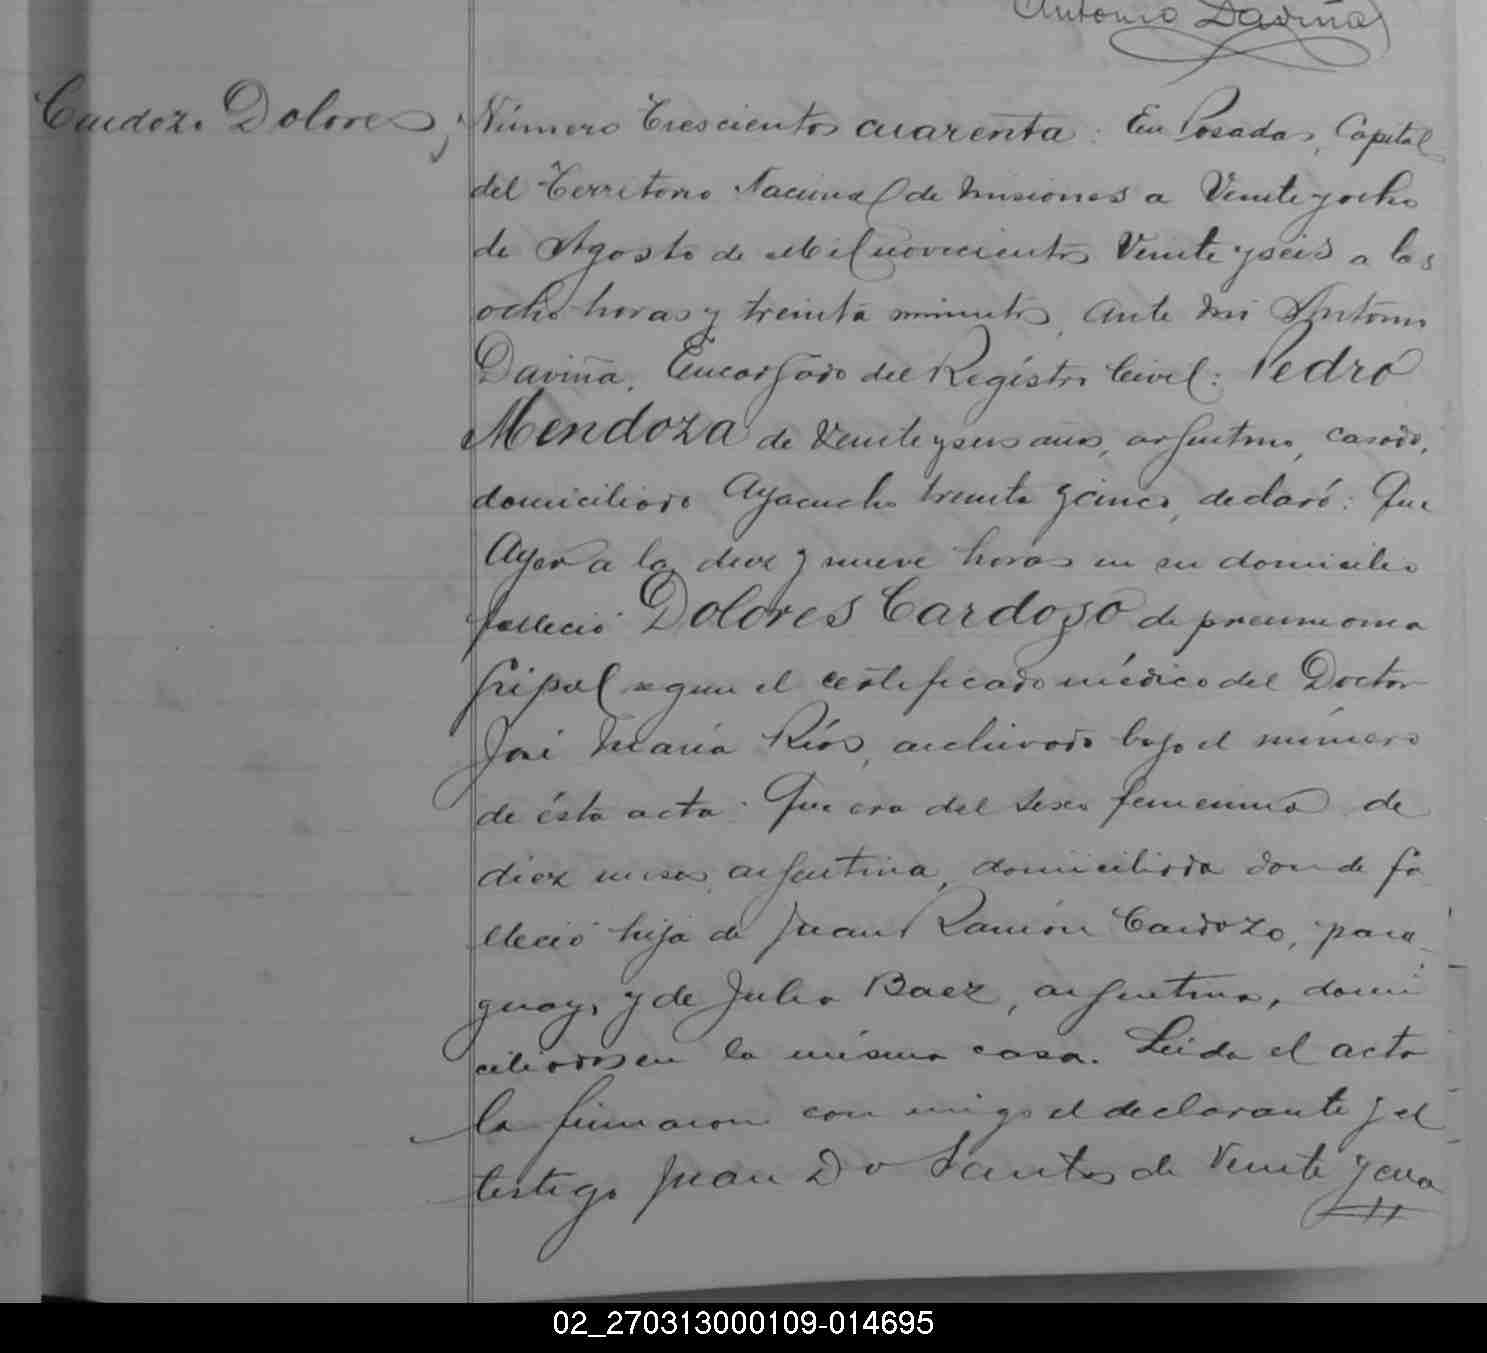 Antonio Daviña
Cardozo Dolores,
Número Trescientos cuarenta: En Posadas, Capital
del Territorio Nacional de Misiones a Veinte y ocho
de Agosto de Mil novecientos Veinte y seis a las
ocho horas y treinta minutos, ante mi Antonio
Daviña, Encargado del Registro Civil: Pedro
Mendoza de Veinte y seis años, argentino, casado,
domiciliado Ayacucho treinta y cinco, declaró: Que
Ayer a la diez y nueve horas en su domicilio
falleció Dolores Cardozo de pneumonia
gripal segun el certificado médico del Doctor
José María Ríos, archivado bajo el número
de ésta acta. Que era del sexo femenino de
diez meses, argentina, domiciliada donde fa
lleció hija de Juan Ramón Cardozo, para-
guayo, y de Julia Baez, argentina, domi
ciliados en la misma casa. Leida el acta
la firmaron con migo el declarante y el
testigo Juan Do Santos de Veinte y cua
02_270313000109-014695